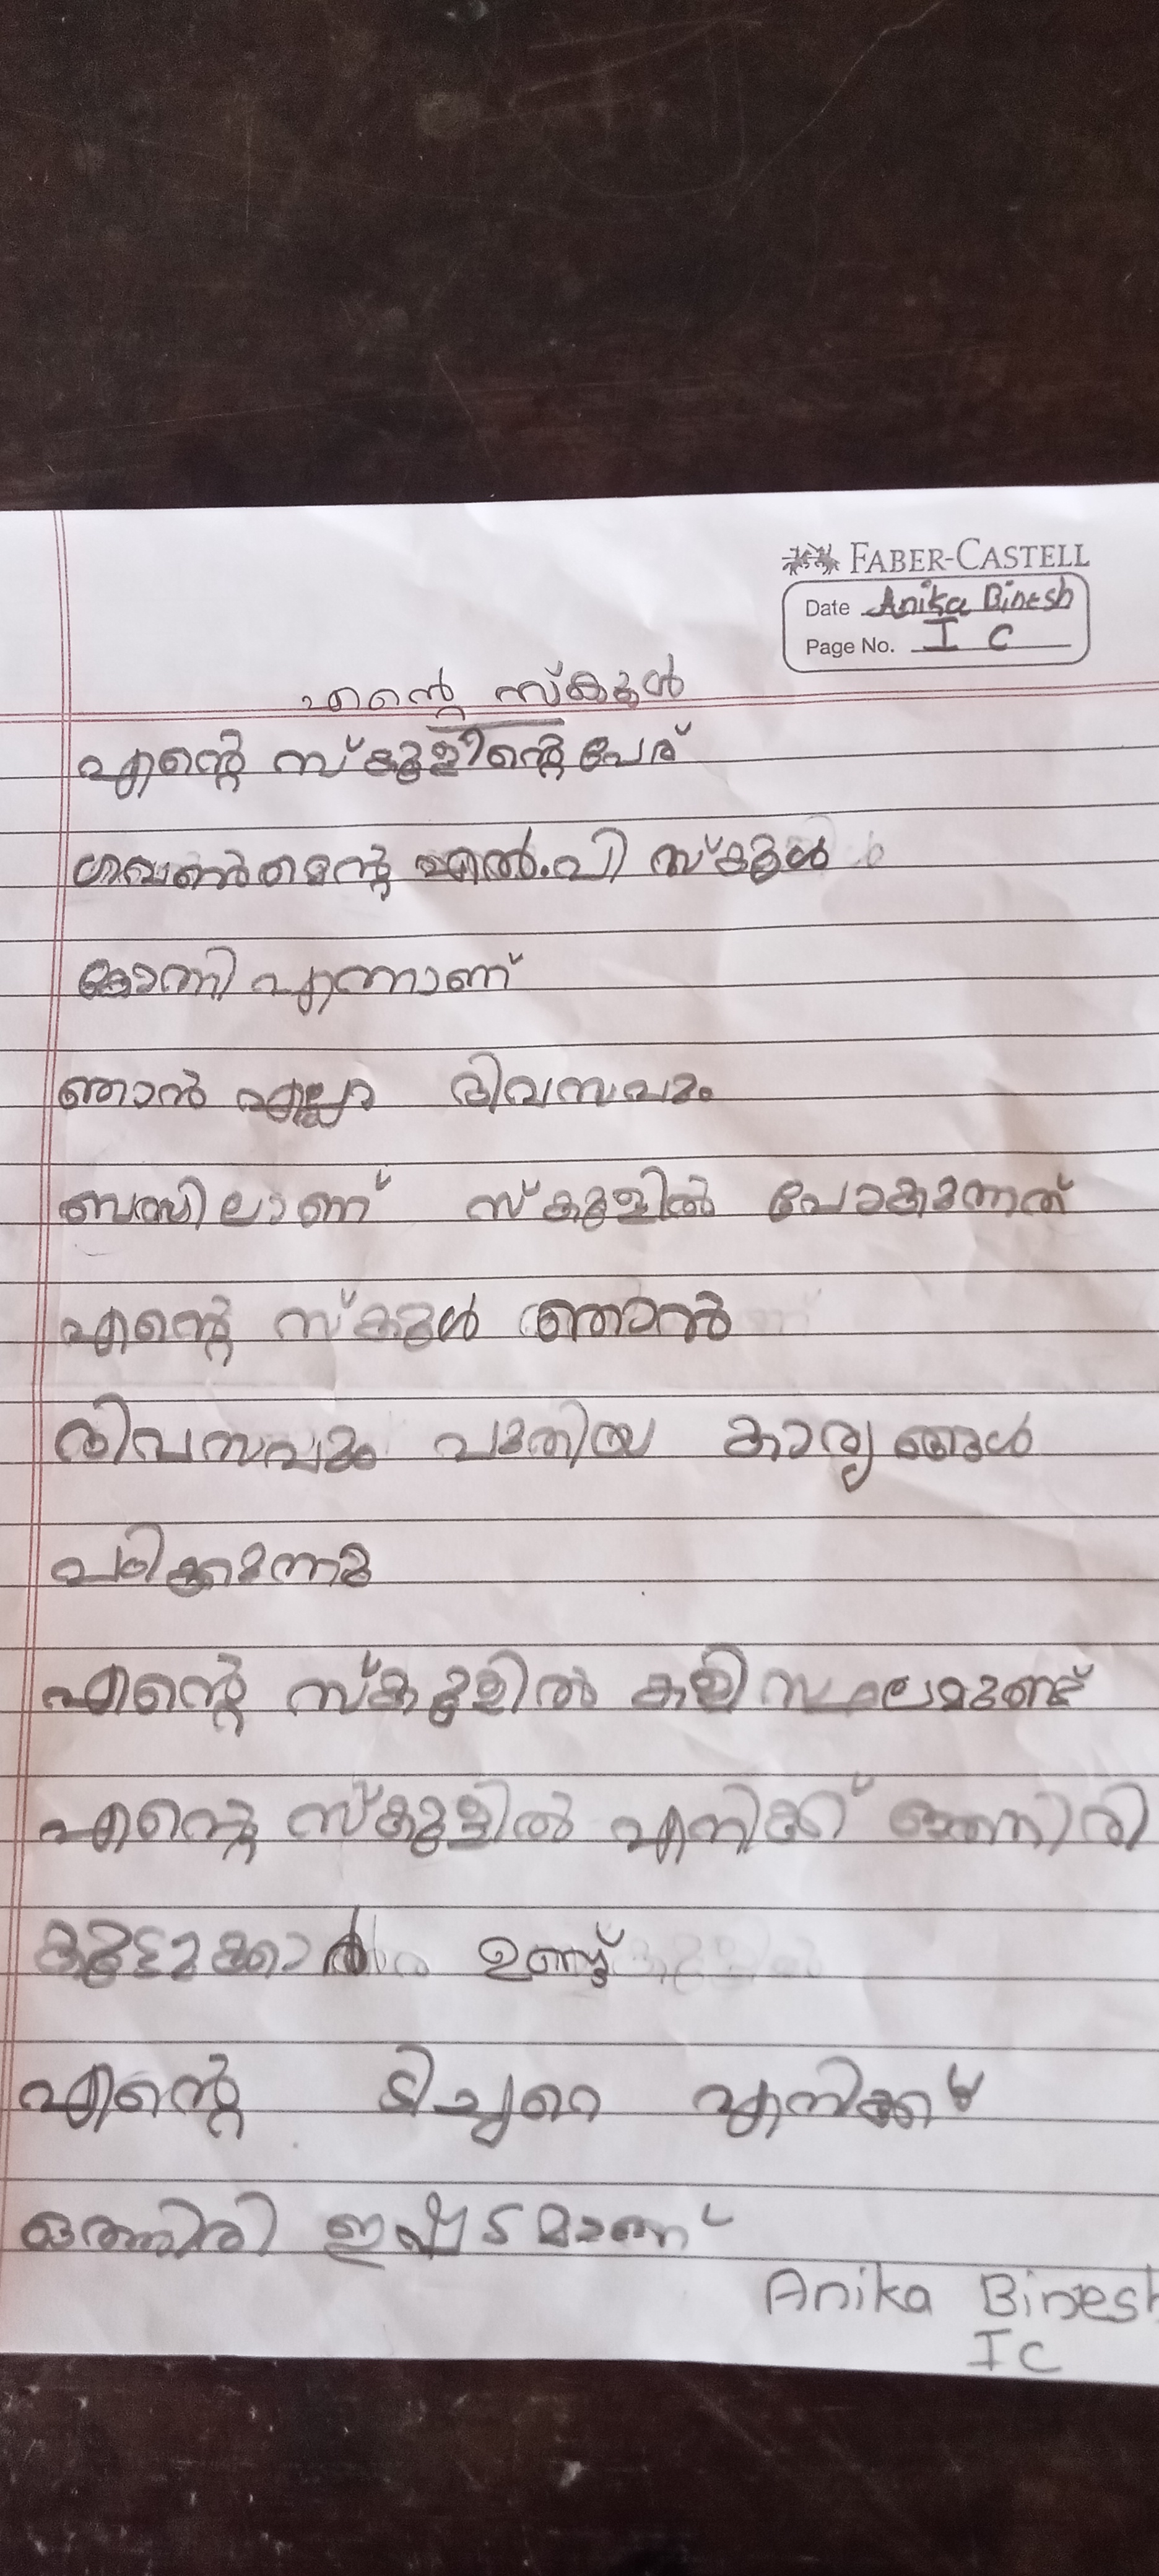 FABER-CASTELL
Date Anika Binesh
Page No. I C
എന്റെ സ്കൂൾ
എന്റെ സ്കൂളിന്റെ പേര്
ഗവൺമെന്റ് എൽ.പി സ്കൂൾ
കോന്നി എന്നാണ്
ഞാൻ എല്ലാ ദിവസവും
ബസിലാണ് സ്കൂളിൽ പോകുന്നത്
എന്റെ സ്കൂൾ ഞാൻ
ദിവസവും പുതിയ കാര്യങ്ങൾ
പഠിക്കുന്നു
എന്റെ സ്കൂളിൽ കളി സ്ഥലമുണ്ട്
എന്റെ സ്കൂളിൽ എനിക്ക് ഒത്തിരി
കൂട്ടുക്കാർ ഉണ്ട്
എന്റെ ടിച്ചറെ എനിക്ക്
ഒത്തിരി ഇഷ്ടമാണ്
Anika Binesh
I C